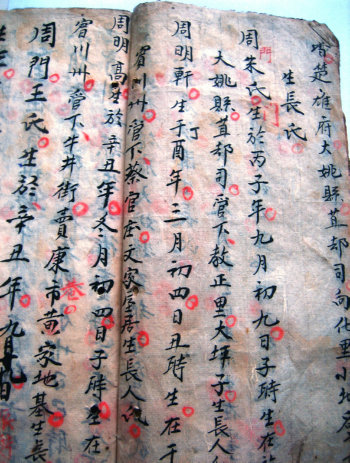 楚雄府大姚縣苴却司向化里小地名
生長氏
周門朱氏生於丙子年九月初九日子時生在
大姚縣苴却司管下教正里大坪子生長人
周明軒生于丁酉年三月初四日丑時生在于
賓川州管下蔡官庄文家屋居生長人氏
周明高生於辛丑年冬月初四日子時生在
賓川州管下牛井街賣康市黄家地基生長
周門王氏生於辛丑年九月